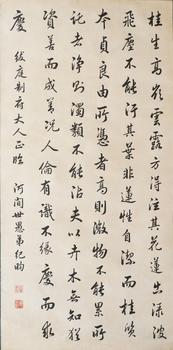 桂生高嶺雲露方得泫其花蓮出淥波
飛塵不能汙其葉非蓮性自潔而桂質
本貞良由所憑者高則微物不能累所
託者淨則濁類不能沾夫以卉木無知猶
資善而成善況人倫有識不緣慶而求
慶
庭制府大人正臨 河間世愚弟紀昀